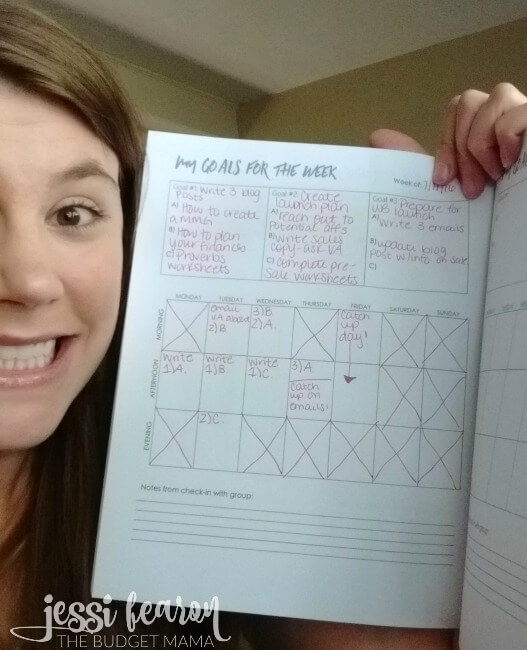 my GOALS FOR THE WEEK
Week of:
Goal #1: Write 3 blog
Posts
A) How to create
a
B) How to plan
your finances
c) Proverbs
worksheets
Goal #2: Create
launch plan
A) reach out to
potential affs
B) write sales
copy-ask VA
c) complete pre-
sale worksheets
Goal #3: Prepare for
WB launch
A) Write 3 emails
B) update blog
post w/info on sale
C)
MONDAY TUESDAY WEDNESDAY THURSDAY FRIDAY SATURDAY SUNDAY
MORNING
email
VA about
2)B.
3)B
2)A.
catch
up
day!
AFTERNOON
write
1)A.
write
1)B
write
1)C.
3)A
catch
up on
emails!
EVENING
2)C.
Notes from check-in with group:
jessi fearon
THE BUDGET MAMA